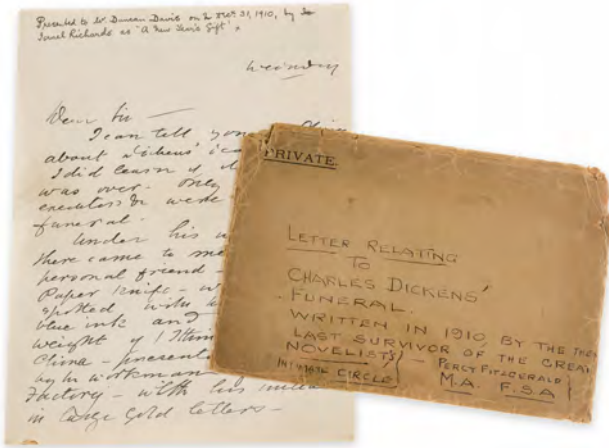 Presented to Mr Duncan Davis on Dec 31, 1910, by
Israel Richards as "A New Year's Gift".
Dear Sir —
I can tell you
about Dickens'
I did learn of
was over - only
executors &c were
funeral -
Under his
there came to me
personal friend -
Paper Knife -
spotted with
blue ink and
weight of
China - present
by workman
Factory - with his
in large gold letters -
PRIVATE.
LETTER RELATING
TO
CHARLES DICKENS'
FUNERAL.
WRITTEN IN 1910, BY THE THEN
LAST SURVIVOR OF THE GREAT
NOVELIST'S } - PERCY FITZGERALD
INTIMATE CIRCLE } M.A. F.S.A